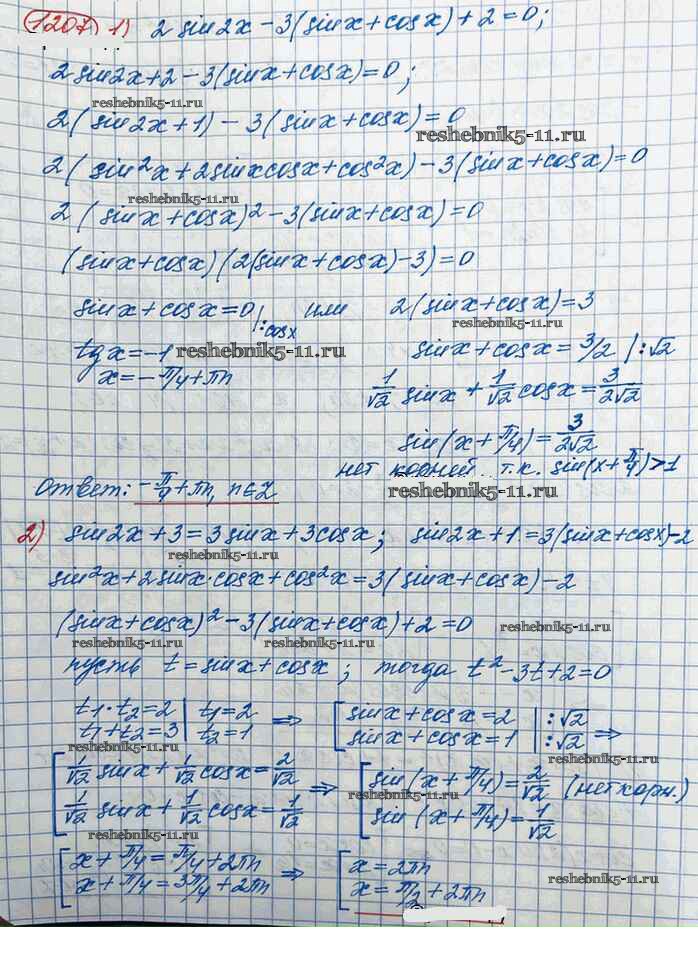 1207 1) 2 sin2x - 3(sinx + cosx) + 2 = 0;
2 sin2x + 2 - 3(sinx + cosx) = 0;
reshebnik5-11.ru
2(sin2x + 1) - 3(sinx + cosx) = 0
reshebnik5-11.ru
2(sin²x + 2sinxcosx + cos²x) - 3(sinx + cosx) = 0
reshebnik5-11.ru
2(sinx + cosx)² - 3(sinx + cosx) = 0
(sinx + cosx)(2(sinx + cosx) - 3) = 0
sinx + cosx = 0 |:cosx или 2(sinx + cosx) = 3
reshebnik5-11.ru
tgx = -1 reshebnik5-11.ru sinx + cosx = 3/2 |:√2
x = -π/4 + πn 1/√2 sinx + 1/√2 cosx = 3/2√2
sin(x + π/4) = 3/2√2
нет корней т.к. sin(x + π/4) > 1
reshebnik5-11.ru
Ответ: -π/4 + πn, n∈Z
2) sin2x + 3 = 3sinx + 3cosx; sin2x + 1 = 3(sinx + cosx) - 2
reshebnik5-11.ru
sin²x + 2sinx·cosx + cos²x = 3(sinx + cosx) - 2
(sinx + cosx)² - 3(sinx + cosx) + 2 = 0 reshebnik5-11.ru
reshebnik5-11.ru reshebnik5-11.ru
пусть t = sinx + cosx; тогда t² - 3t + 2 = 0
t1·t2 = 2 | t1 = 2 ⇒ [ sinx + cosx = 2 | :√2
t1 + t2 = 3 | t2 = 1 sinx + cosx = 1 | :√2 ⇒
reshebnik5-11.ru
[ 1/√2 sinx + 1/√2 cosx = 2/√2 ⇒ [ sin(x + π/4) = 2/√2 (нет корн.)
1/√2 sinx + 1/√2 cosx = 1/√2 sin(x + π/4) = 1/√2
reshebnik5-11.ru
[ x + π/4 = π/4 + 2πn ⇒ [ x = 2πn
x + π/4 = 3π/4 + 2πn x = π/2 + 2πn
reshebnik5-11.ru